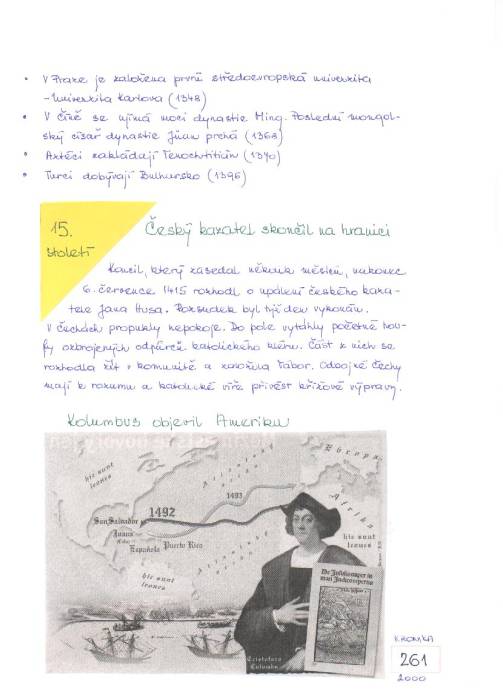 • V Praze je založena první středoevropská univerzita
- Univerzita Karlova (1348)
• V Číně se ujímá moci dynastie Ming. Poslední mongol-
ský císař dynastie Jüan prchá (1368)
• Aztéci zakládají Tenochtitlán (1370)
• Turci dobývají Bulharsko (1396)
15.
století
Český kazatel skončil na hranici
Koncil, který zasedal několik měsíců, nakonec
6. července 1415 rozhodl o upálení českého kaza-
tele Jana Husa. Rozsudek byl týž den vykonán.
V Čechách propukly nepokoje. Do pole vytáhly početné hou-
fy ozbrojených odpůrců katolického kléru. Část z nich se
rozhodla žít v komunitě a založila Tábor. Odbojné Čechy
mají k rozumu a katolické víře přivést křížové výpravy.
Kolumbus objevil Ameriku
hic sunt
leones
Evropa
1493
1492
San Salvador
Juana
Española
Puerto Rico
Afrika
hic sunt
leones
hic sunt
leones
Cristoforo
Colombo
KRONIKA
261
2000